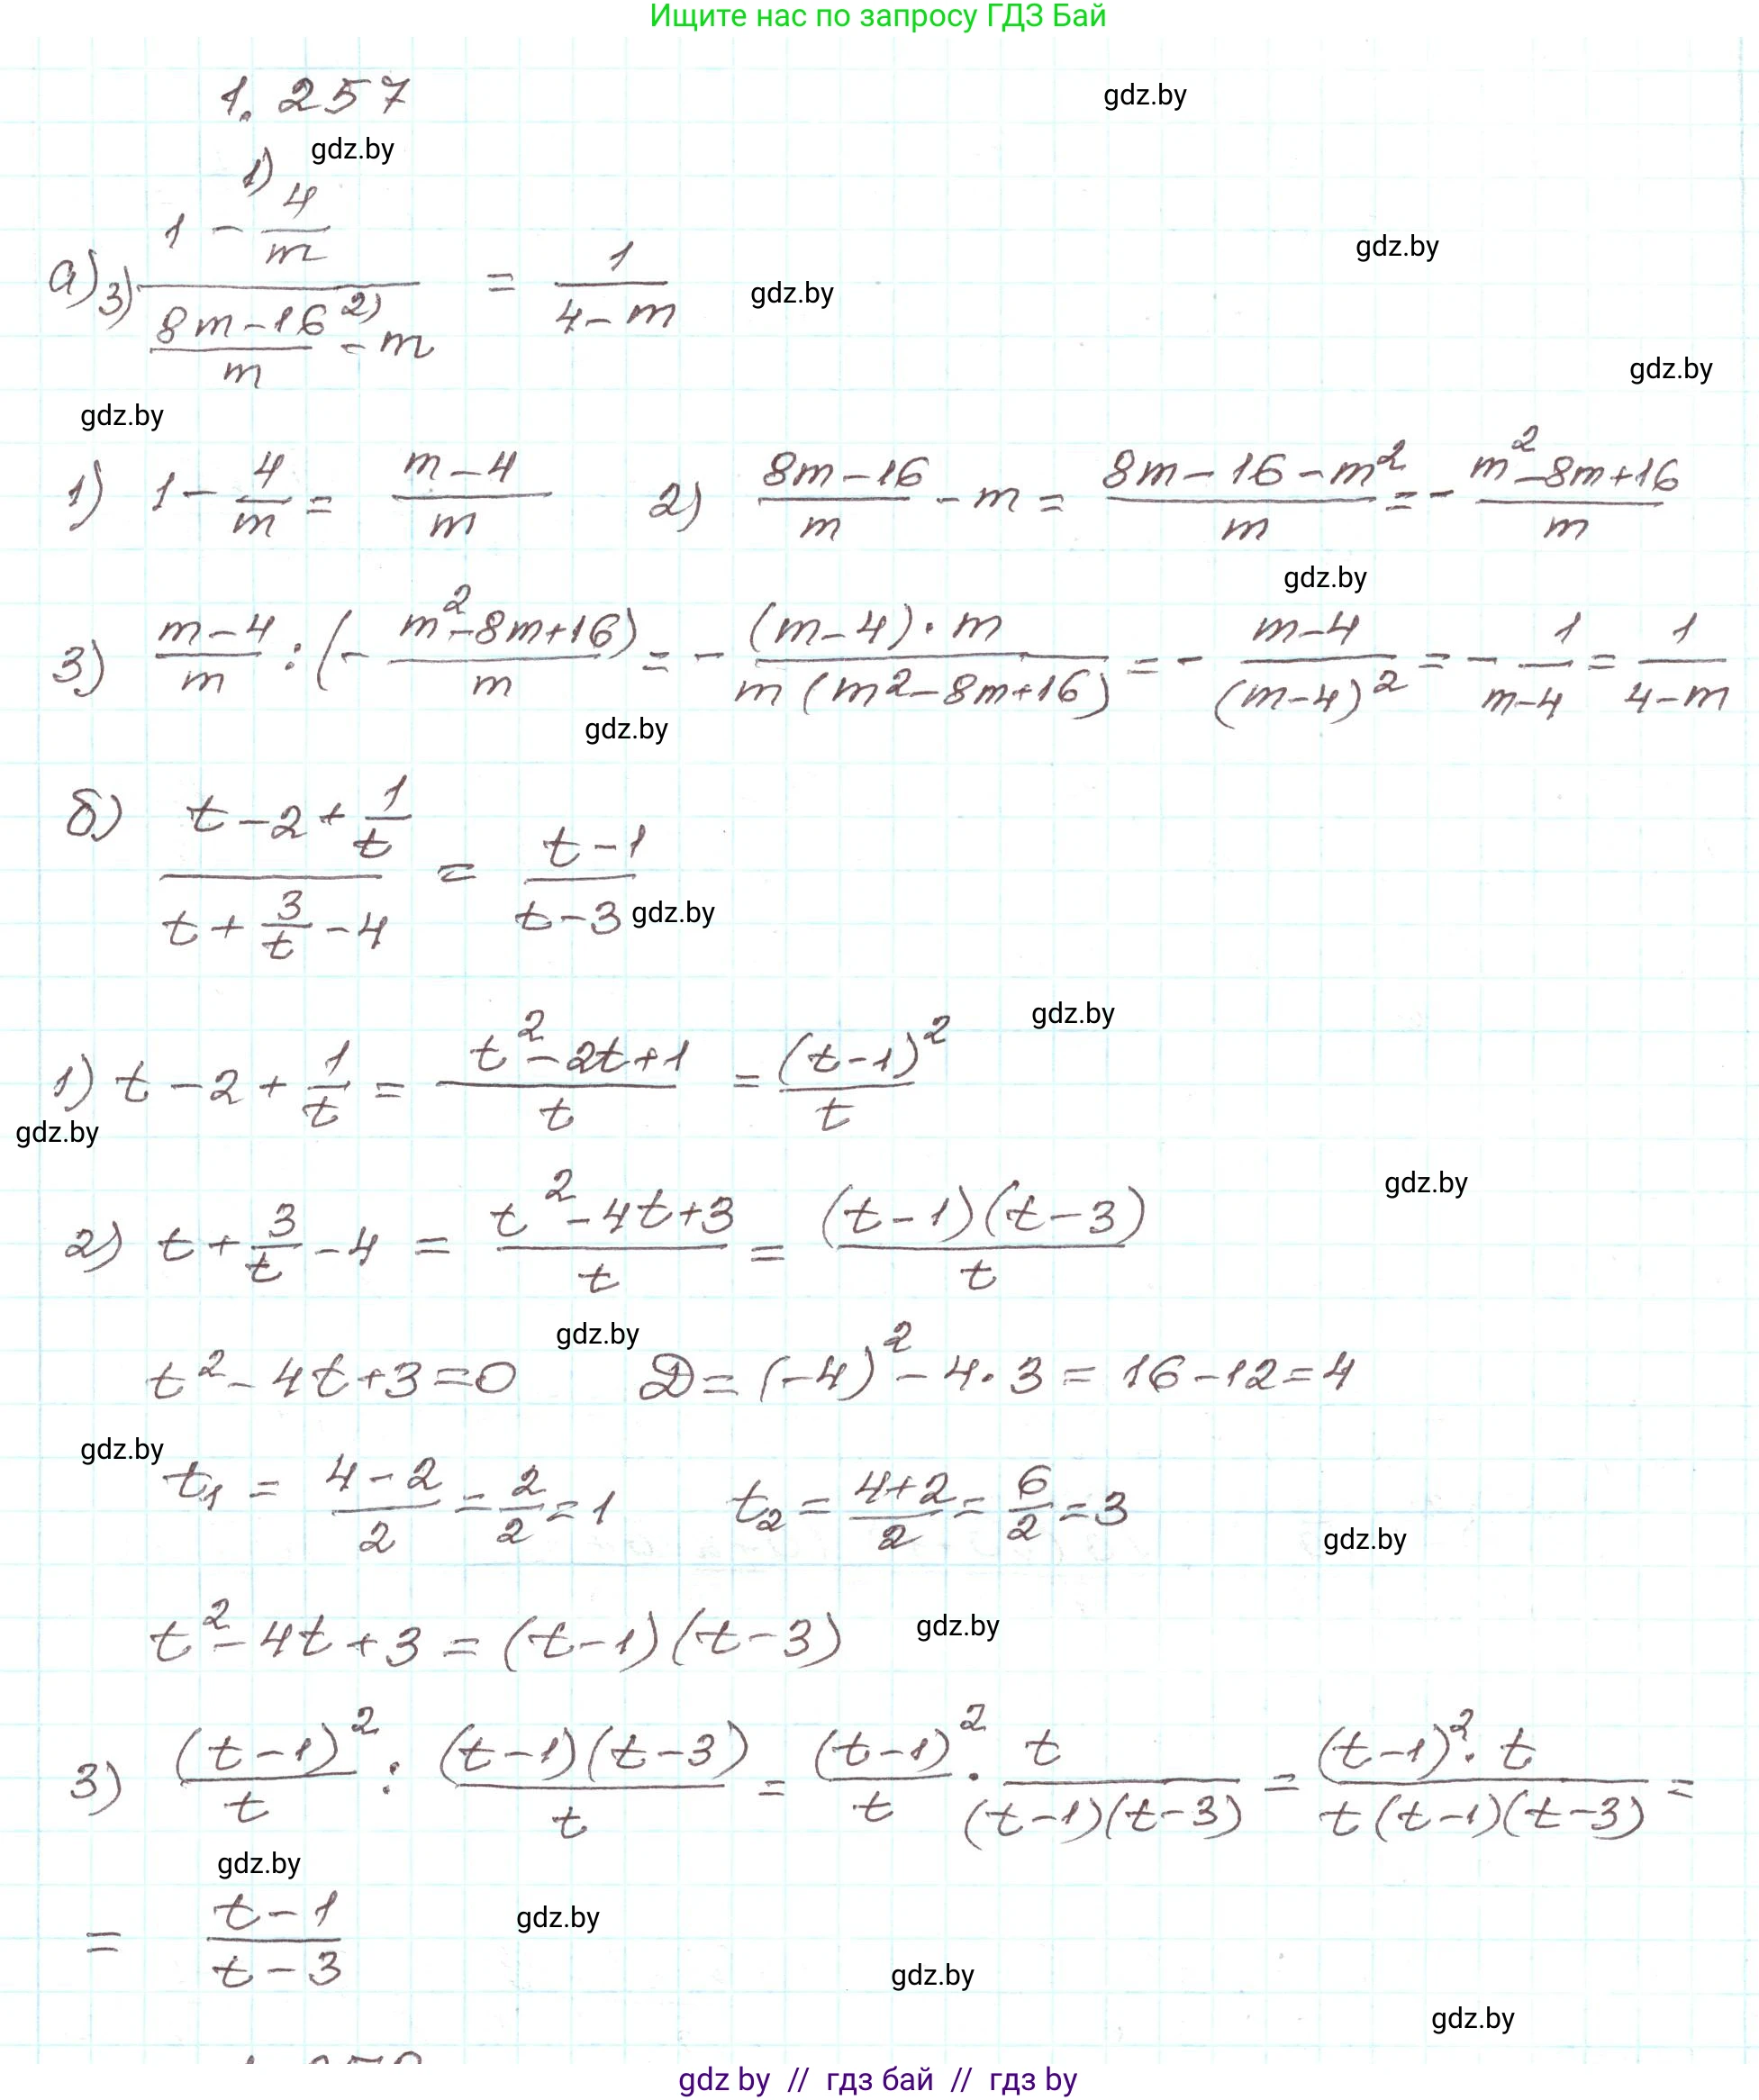 Ищите нас по запросу ГДЗ Бай
1.257
gdz.by
gdz.by
а) 3) (1 -¹⁾ 4/m) / ((8m-16)/m -²⁾ m) = 1/(4-m)
gdz.by
gdz.by
gdz.by
gdz.by
1) 1 - 4/m = (m-4)/m 2) (8m-16)/m - m = (8m-16-m²)/m = - (m²-8m+16)/m
gdz.by
3) (m-4)/m : (- (m²-8m+16)/m) = - ((m-4)·m)/(m(m²-8m+16)) = - (m-4)/(m-4)² = - 1/(m-4) = 1/(4-m)
gdz.by
б) (t-2+1/t) / (t+3/t-4) = (t-1)/(t-3)
gdz.by
gdz.by
1) t-2+1/t = (t²-2t+1)/t = (t-1)²/t
gdz.by
gdz.by
2) t+3/t-4 = (t²-4t+3)/t = ((t-1)(t-3))/t
gdz.by
t²-4t+3=0 D=(-4)²-4·3=16-12=4
gdz.by
t₁ = (4-2)/2 = 2/2 = 1 t₂ = (4+2)/2 = 6/2 = 3
gdz.by
t²-4t+3=(t-1)(t-3)
gdz.by
3) (t-1)²/t : ((t-1)(t-3))/t = (t-1)²/t · t/((t-1)(t-3)) = ((t-1)²·t)/(t(t-1)(t-3)) =
gdz.by
= (t-1)/(t-3)
gdz.by
gdz.by
gdz.by
gdz by // гдз бай // гдз by